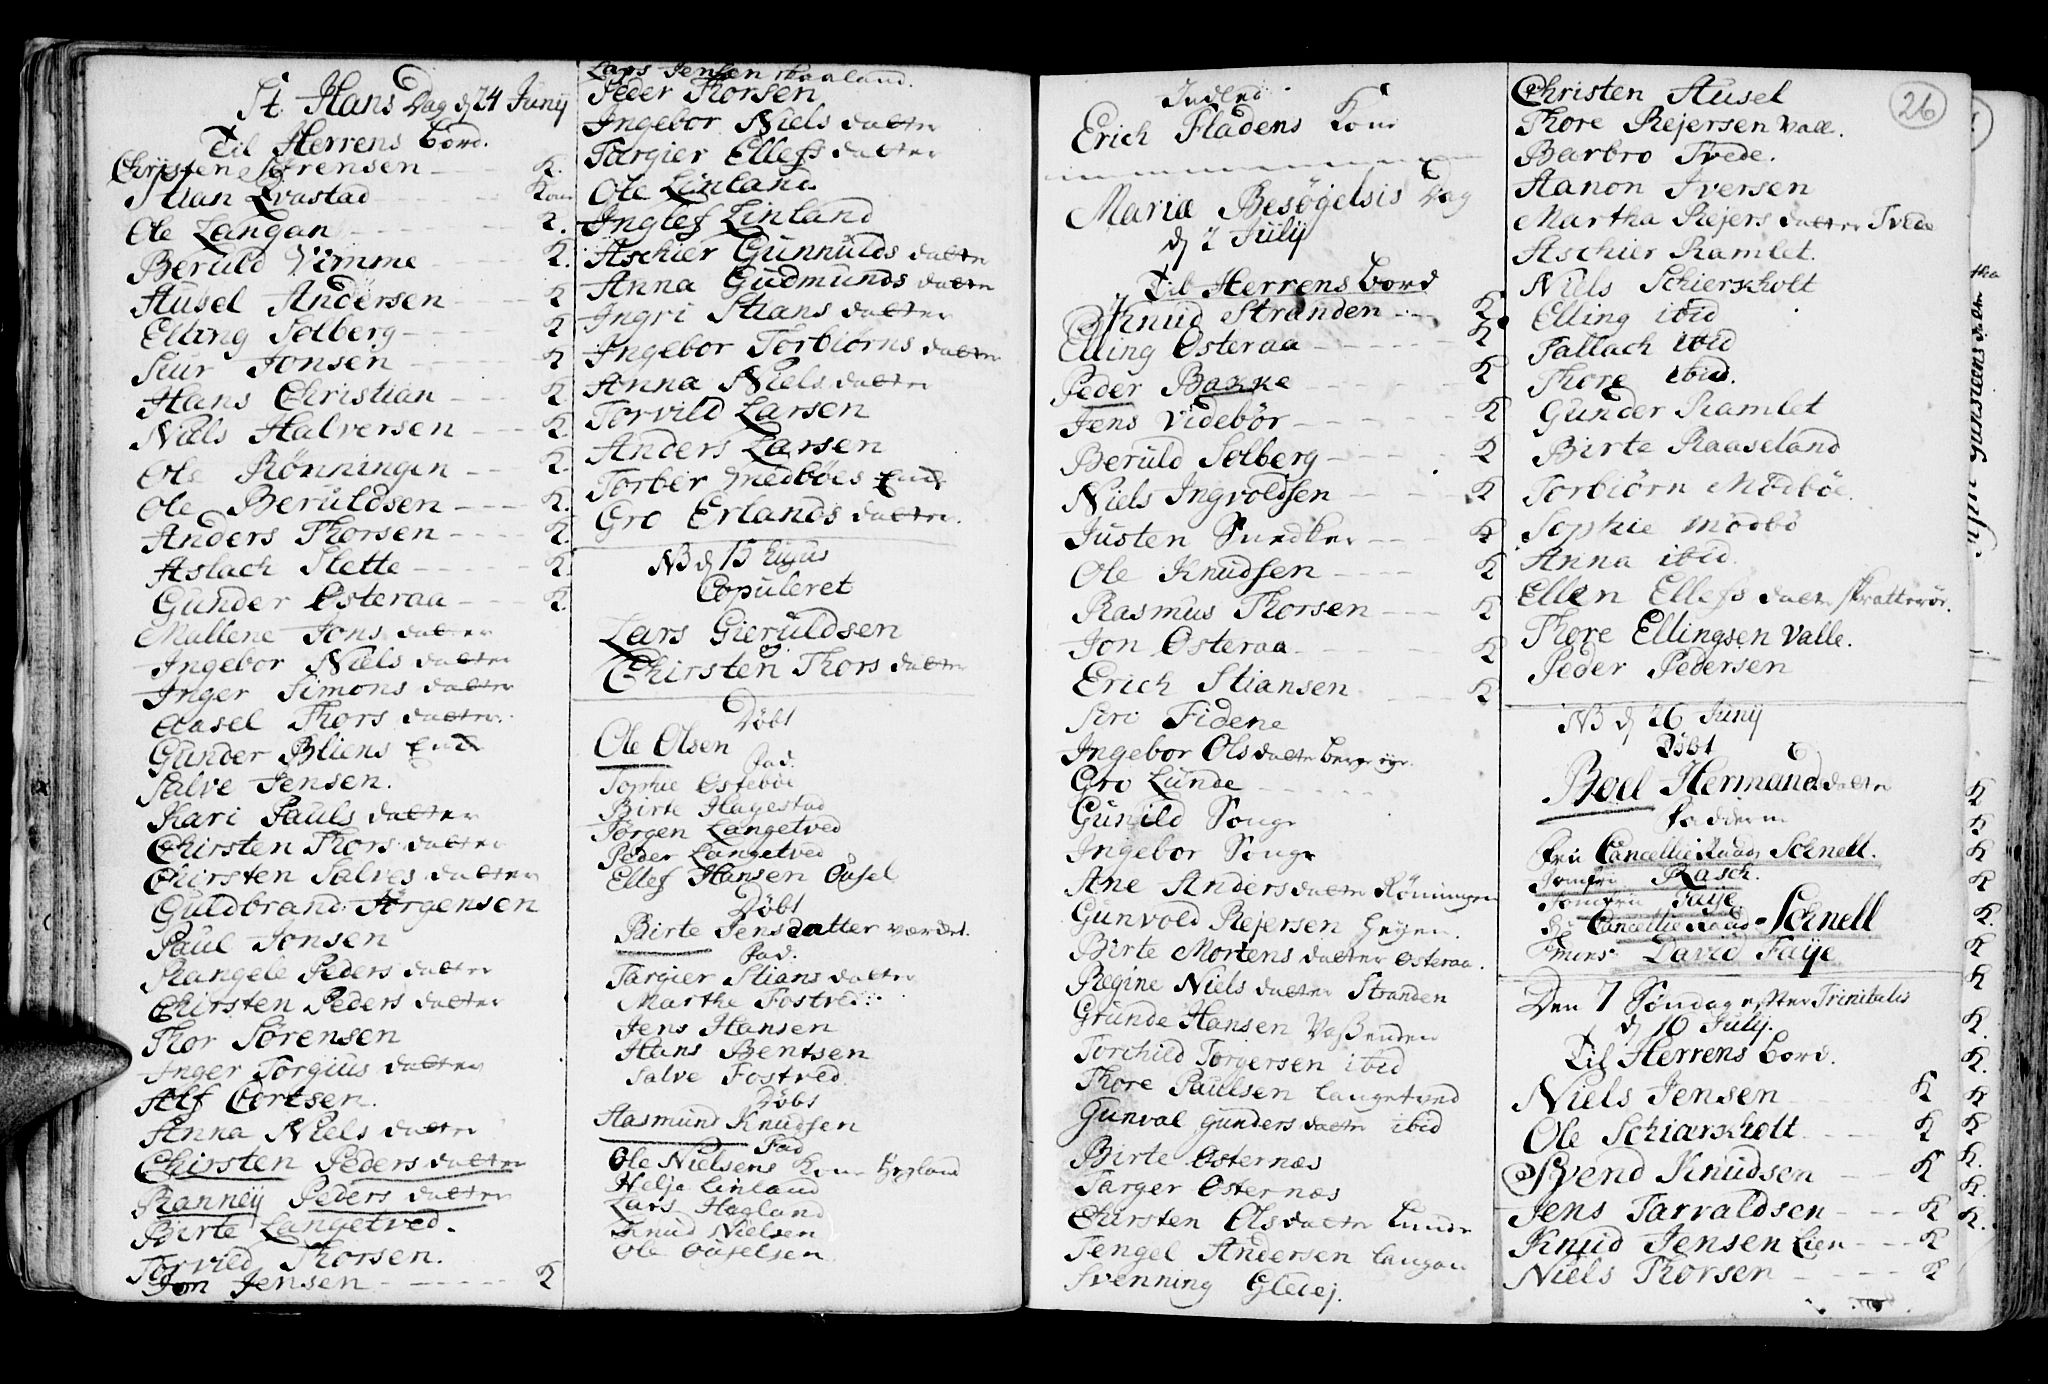 St. Hans Dag d 24 Junij
Til Herrens bord.
Christen Sørrensen K.
Stian Qvastad Kone
Ole Langan K.
Beruld Vimme K.
Ausel Andersen K
Elling Solberg K
Siur Jonsen K
Hans Christian K
Niels Halversen K.
Ole Rønningen K.
Ole Beruldsen K.
Anders Thorsen K.
Aslach Slette K.
Gunder Osteraa K.
Mallene Jons datter
Ingebor Niels datter
Inger Simons datter
Aasel Thors datter
Gunder Bliens
Salve Jensen.
Kari Pauls datter
Chirsten Thors datter
Chirsten Salves datter
Guldbrand Jørgensen
Paul Jonsen
Rangele Peders datter
Chirsten Peders datter
Thor Sørensen
Inger Torgius datter
Alf Cortsen.
Anna Niels datter
Chirsten Peders datter
Ranneij Peders datter
Birte Langetved.
Torvild Thorsen.
Jon Jensen K
Lars Jensen
Peder Thorsen
Ingebor Niels datter
Targier Ellefs datter
Ole Linland
Inglef Linland
Aschier Gunnulds datter
Anna Gudmunds datter
Ingri Stians datter
Ingebor Torbiørns datter
Anna Niels datter
Torvild Larsen
Anders Larsen
Torber Mødbøes
Gro Erlands datter.
NB d 15 hujus
Copuleret
Lars Gieruldsen
Chirsten Thors datter
Døbt
Ole Olsen
Fad.
Sophie Ostebøe
Birte Hagestad
Jørgen Langetved
Peder Langetved
Ellef Hansen Ousel
Døbt
Birte Jensdatter
Fad.
Targier Stians datter
Marthe Fostved
Jens Hansen
Hans Bentsen
Salve Fostved
Døbt
Aasmund Knudsen
Fad
Ole Nielsens Kone
Helje Linland
Lars Hagland
Knud Nielsen
Ole Ouselsen
Indled:
Erich Fladens Kone
Mariæ Besøgelsis Dag
d 2 Julij
Til Herrens bord
Knud Stranden K
Elling Osteraa K
Peder Bakke K
Jens Videbør K
Beruld Solberg K
Niels Ingvoldsen K
Justen Snedker K
Ole Knudsen K
Rasmus Thorsen K
Jon Osteraa K
Erich Stiansen K
Siri Fidene
Ingebor Olsdatter
Gro Lunde
Gunild Songe
Ingebor Songe
Ane Andersdatter Rønningen
Gunvold Rejersen
Birte Mortens datter Osteraa.
Regine Niels datter Stranden
Grunde Hansen Vaßenden
Torchild Torgersen ibid
Thore Paulsen Langetved
Gunval Gunders datter ibid
Birte Osternæs
Targer Osternæs
Chirsten Olsdatter Lunde
Tengel Andersen Langan
Svenning Glewej.
26
Christen Ausel
Thore Rejersen Valle.
Barbro Tvede.
Aanon Iversen
Martha Rejers datter Tvede
Aschier Ramlet.
Niels Schierskholt
Elling ibid
Tallach ibid
Thore ibid.
Gunder Ramlet
Birte Raaseland
Torbiørn Mødbøe.
Sophie Mødbø
Anna ibid.
Ellen Ellefs datter
Thore Ellingsen Valle.
Peder Pedersen
NB d 26 Junij
Døbt
Boel Hermands datter
Fadderne
Fru Cancellie Raad Schnell.
Jomfru Rasch.
Jomfru Faije.
Hr. Cancellie Raad Schnell
Mons. David Faije
Den 7 Søndag efter Trinitatis
d 16 Julij.
Til Herrens bord.
Niels Jensen K
Ole Schiærskholt K
Svend Knudsen K
Jens Tarvaldsen K
Knud Jensen Lien K
Niels Thorsen K